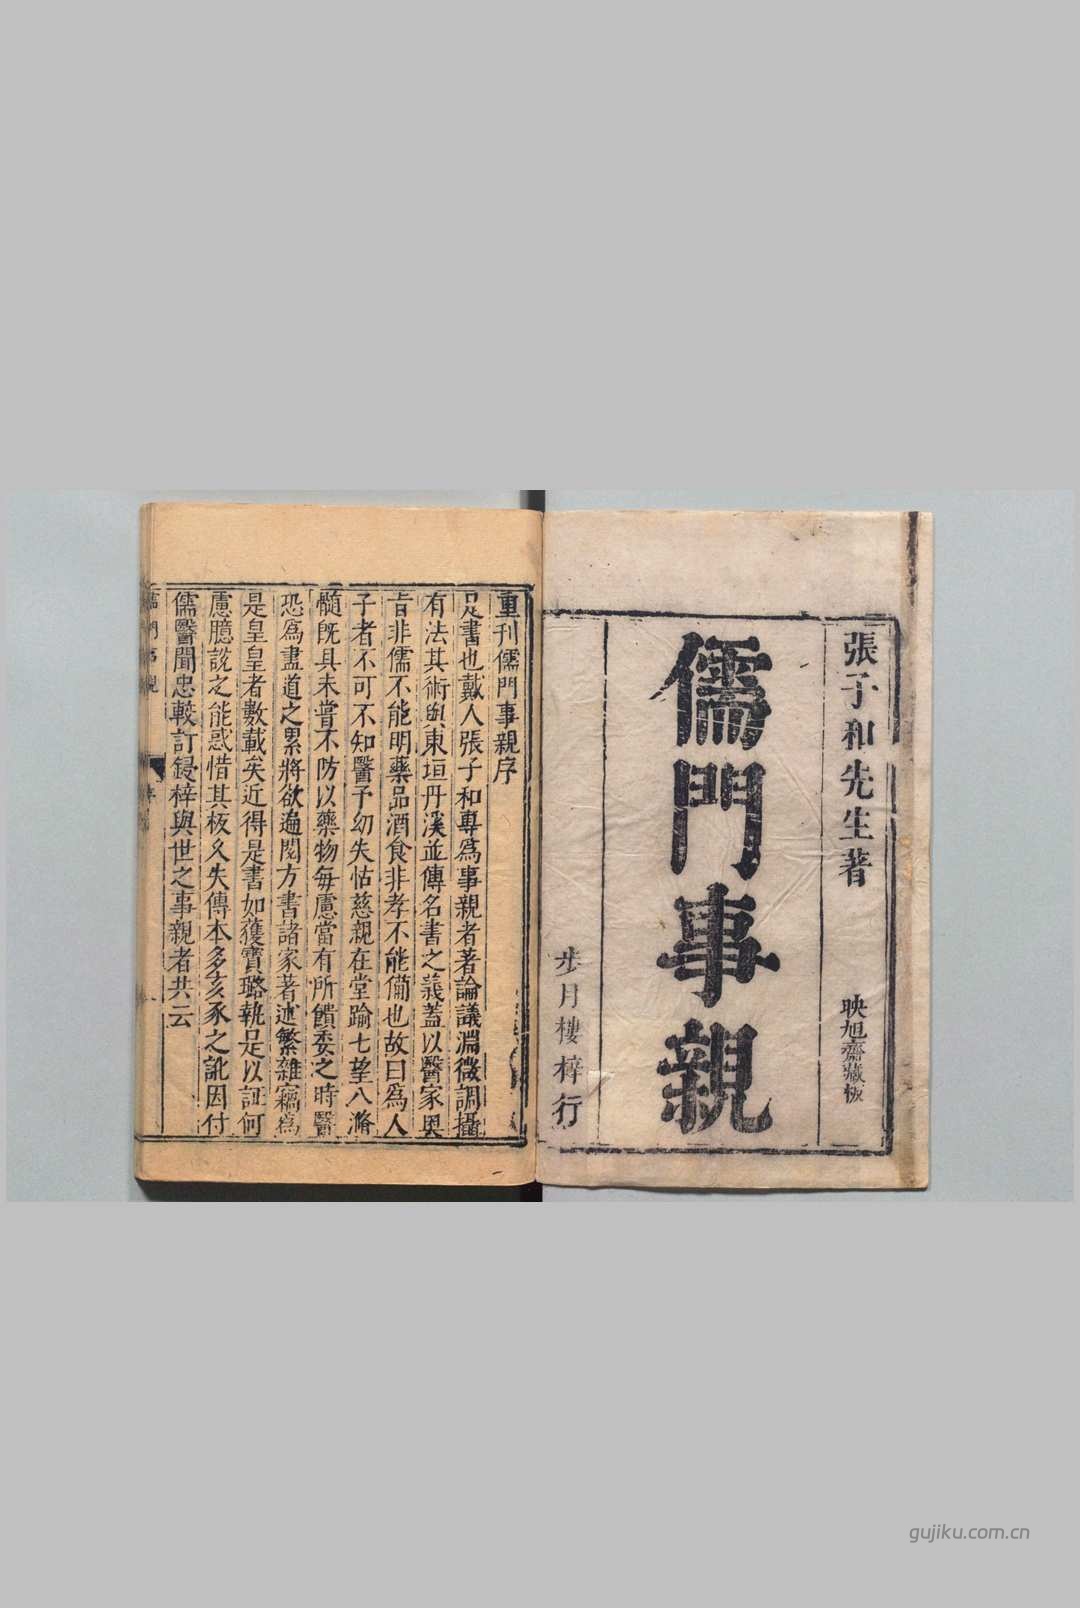 張子和先生著
映旭齋藏板
儒門事親
步月樓梓行
重刊儒門事親序
是書也戴人張子和專爲事親者著論議淵微調攝
有法其術與東垣丹溪並傳名書之義蓋以醫家奧
旨非儒不能明藥品酒食非孝不能備也故曰爲人
子者不可不知醫予幼失怙慈親在堂踰七望八滫
髓既具未嘗不防以藥物每慮當有所饋委之時醫
恐爲盡道之累將欲遍閱方書諸家著述繁雜竊爲
是皇皇者數載矣近得是書如獲寶璐執足以証何
慮臆說之能惑惜其板久失傳本多亥豕之訛因付
儒醫聞忠較訂鋟梓與世之事親者共云
儒門事親
序
gujiku.com.cn